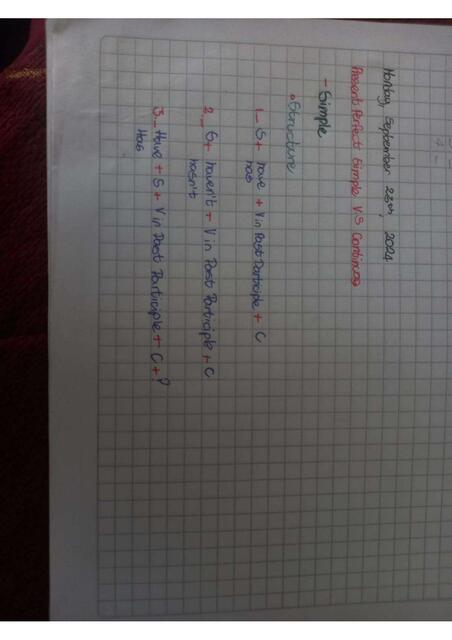 Monday, September 23th, 2024
Present Perfect Simple VS Continuous
- Simple
• Structure
1._ S + have + V in Past Participle + C
has
2._ S + haven't + V in Past Participle + C
hasn't
3._ Have + S + V in Past Participle + C + ?
Has